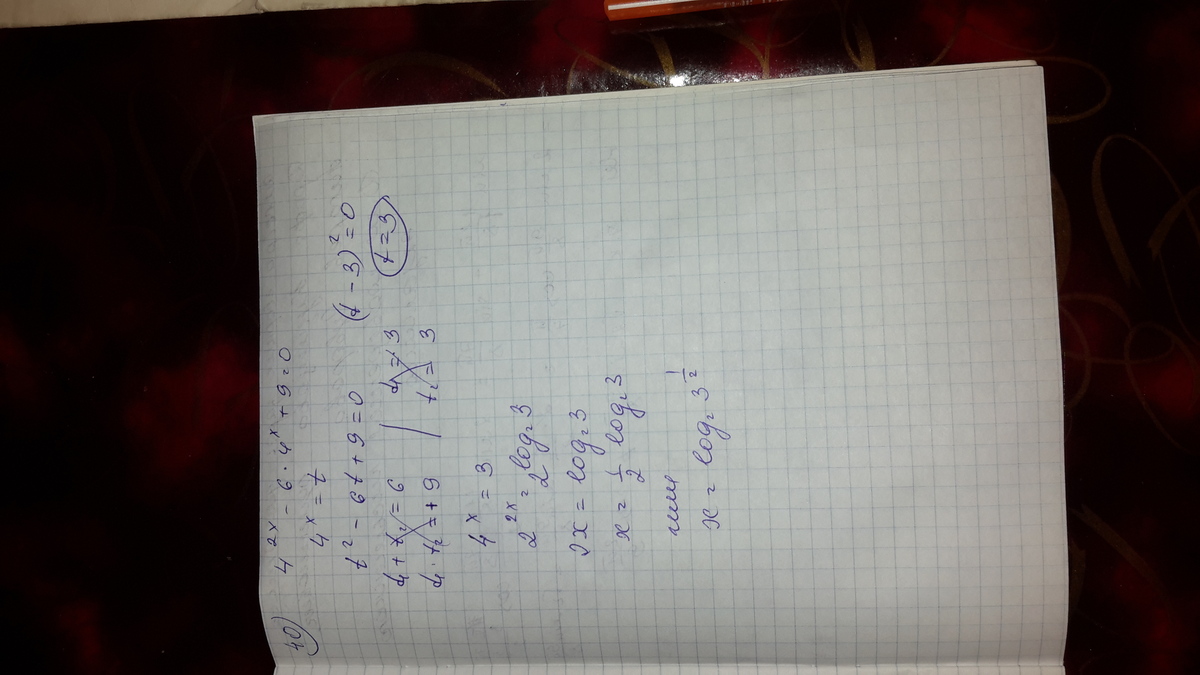 40)
4^{2x} - 6 · 4^x + 9 = 0
4^x = t
t² - 6t + 9 = 0    (t - 3)² = 0
t₁ + t₂ = 6    t₁ = 3    t = 3
t₁ · t₂ = +9    t₂ = 3
4^x = 3
2^{2x} = 2^{log₂3}
2x = log₂3
x = 1/2 log₂3
или
x = log₂3^{1/2}